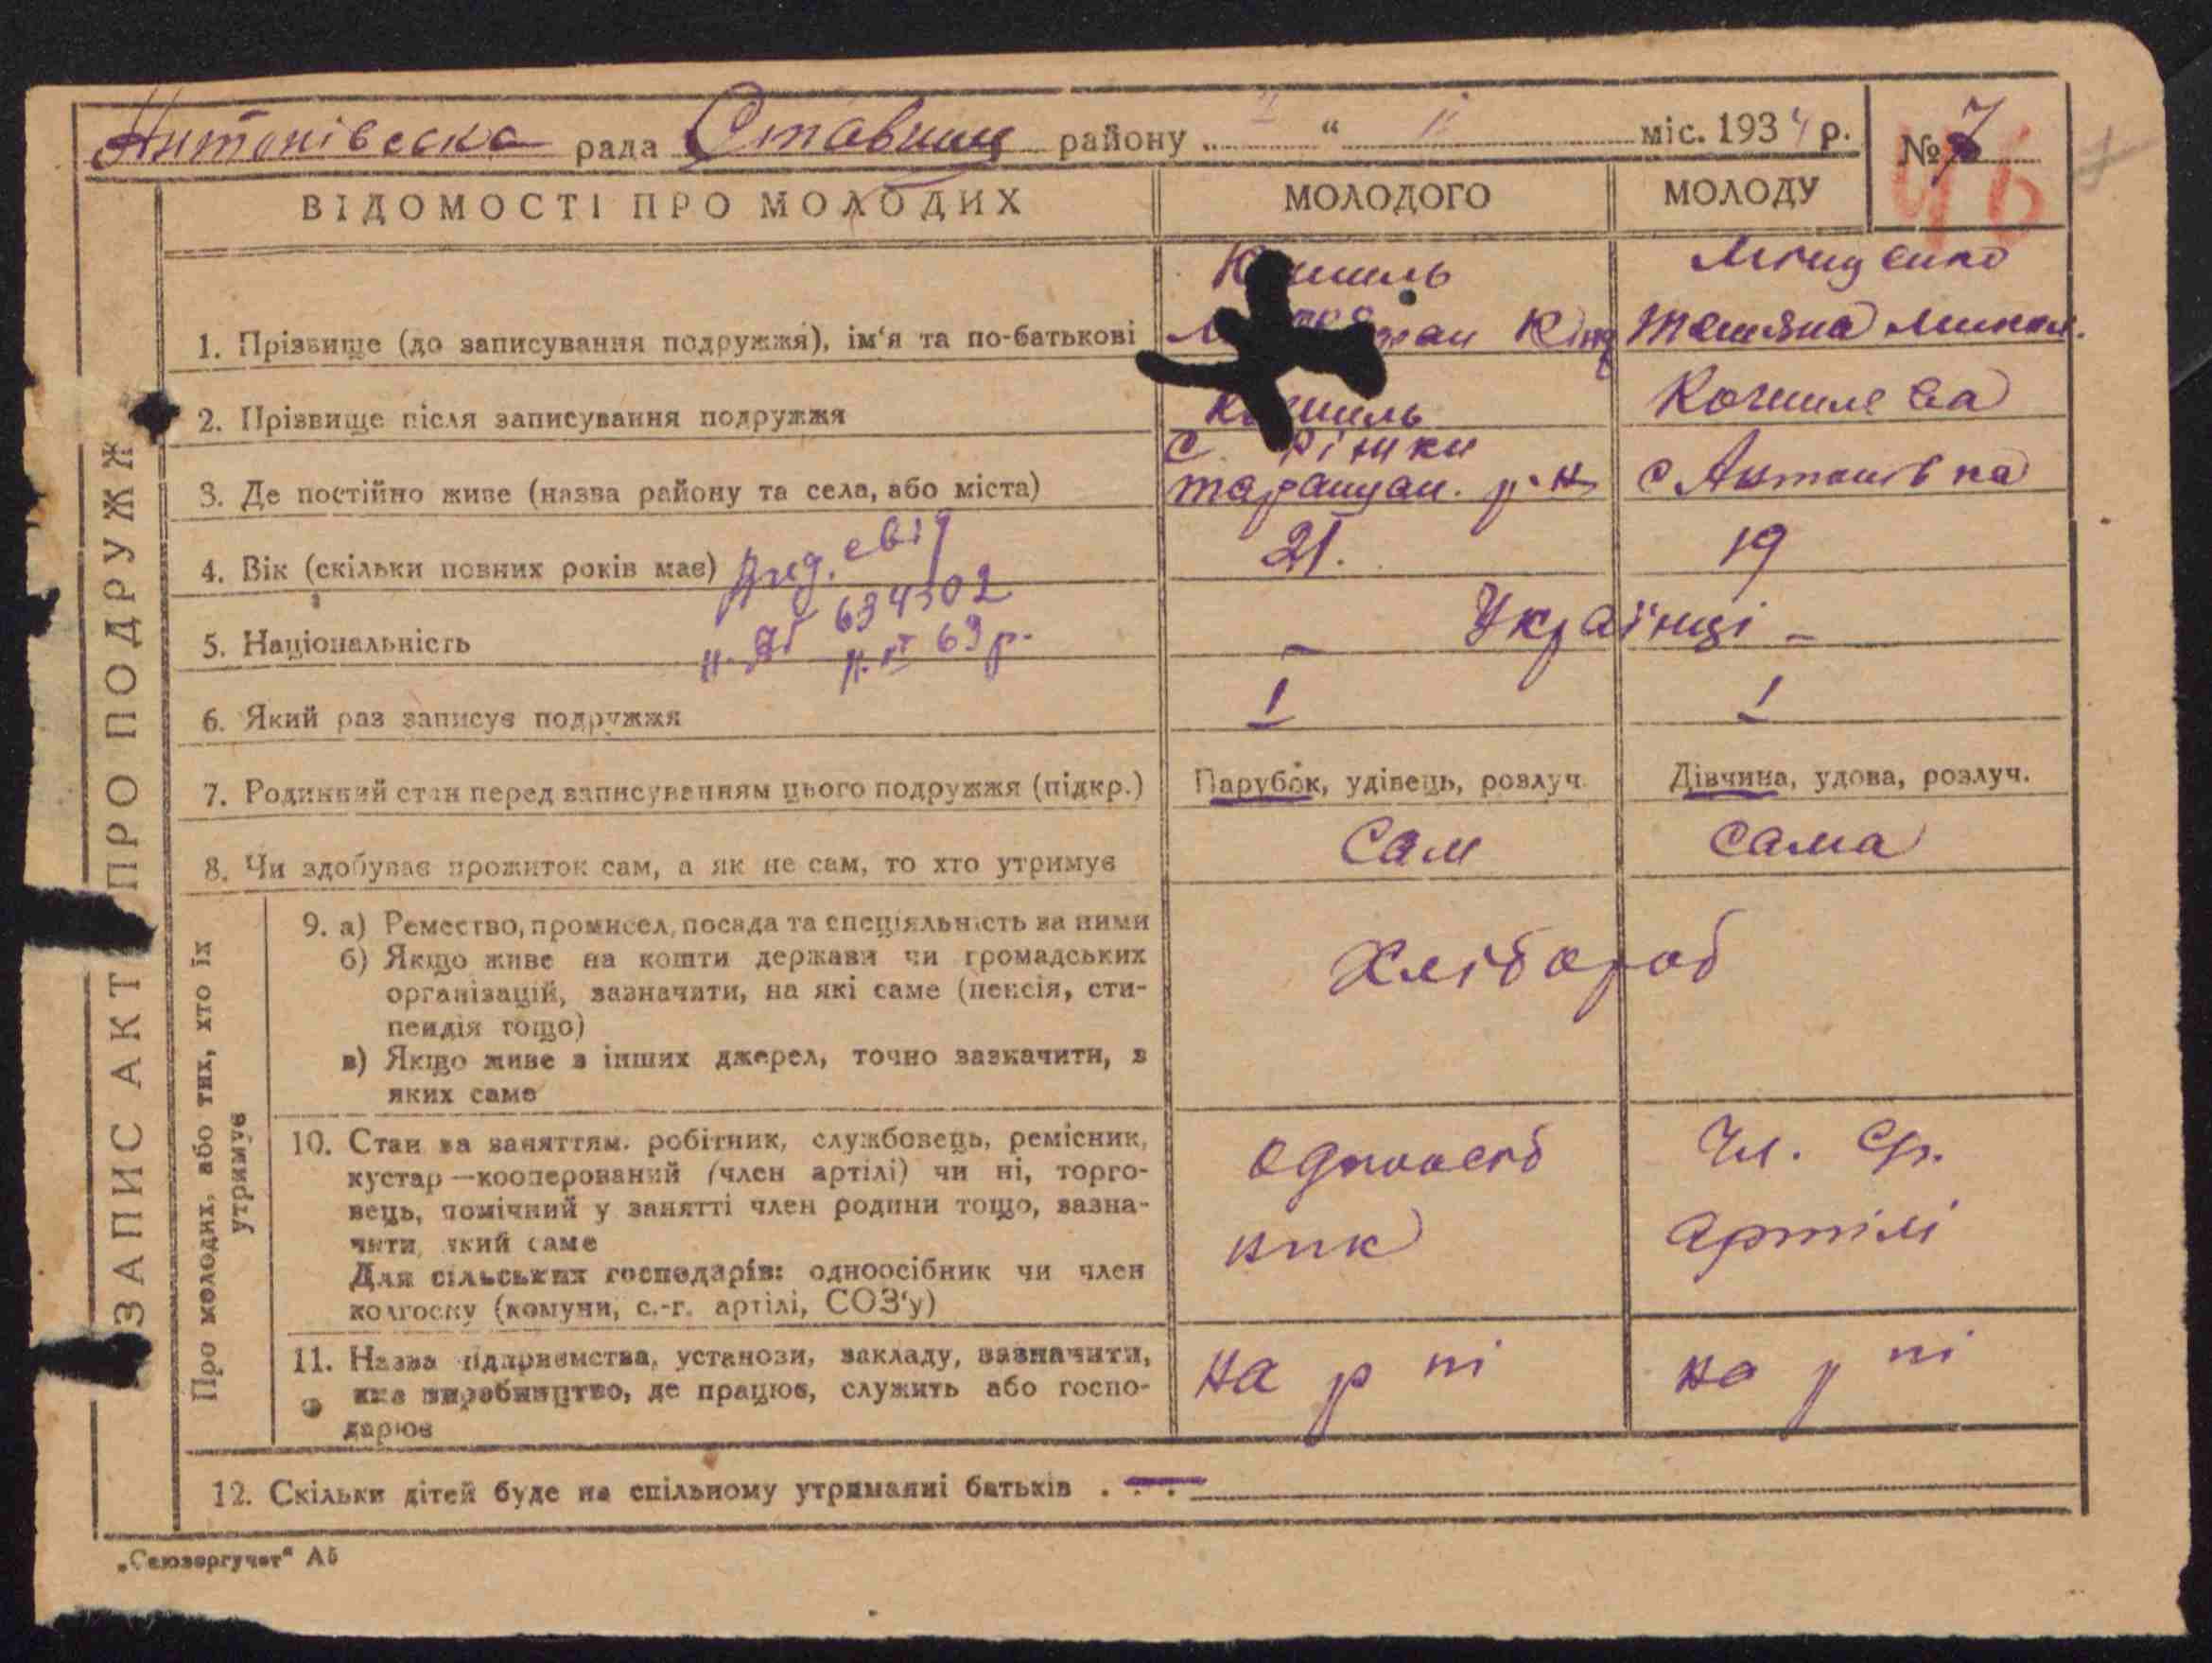 Антонівська рада Ставищ району „ 2 “ II міс. 1934 р. № 7
46
ВІДОМОСТІ ПРО МОЛОДИХ МОЛОДОГО МОЛОДУ
ЗАПИС АКТ ПРО ПОДРУЖЖ
1. Прізвище (до записування подружжя), ім‘я та по-батькові
Тетяна Микол.
2. Прізвище після записування подружжя Кошилева
3. Де постійно живе (назва району та села, або міста) таращан. р-н с Антонівка
4. Вік (скільки повних років має) 21. 19
Вид. свід
5. Національність — Українці —
634502
6. Який раз записує подружжя 1 1
7. Родинний стан перед записуванням цього подружжя (підкр.) Парубок, удівець, розлуч. Дівчина, удова, розлуч.
8. Чи здобуває прожиток сам, а як не сам, то хто утримує Сам Сама
Про молодих, або тих, хто їх утримує
9. а) Ремество, промисел, посада та спеціяльність за ними
б) Якщо живе на кошти держави чи громадських
організацій, зазначити, на які саме (пенсія, сти-
пендія тощо)
Хлібороб
в) Якщо живе з інших джерел, точно зазначити, з
яких саме
10. Стан за заняттям: робітник, службовець, ремісник,
кустар—кооперований (член артілі) чи ні, торго-
вець, помічний у занятті член родини тощо, зазна-
чити, який саме
Для сільських господарів: одноосібник чи член
колгоспу (комуни, с.-г. артілі, СОЗ‘у)
одноосіб
ник
Чл. Ср.
артілі
11. Назва підприємства, установи, закладу, зазначити,
яке виробництво, де працює, служить або госпо-
дарює
на р ті на р ті
12. Скільки дітей буде на спільному утриманні батьків . . . —
„Союзоргучет“ А5